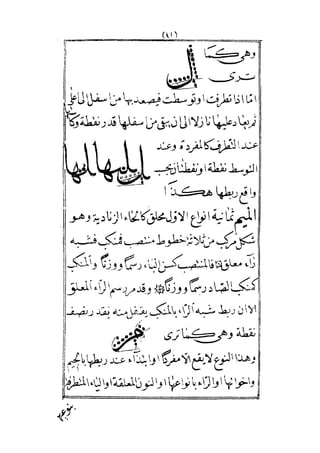 (٨١)
وهى كما
ترى
اما اذا تطرفت او توسطت فيصعد بها من اسفل الى اعلى
ثم يعاد عليها نازلا الى ان يبقى من اسفلها قدر نقطة وكما
عند التطرف كالمفردة وعند
التوسط نقطة او نقطتان بحسب
واقع ربطها هكذا
الميم ثمانية انواع الاول محلق كالحاء الزنادية وهو
شكل مركب من ثلاثة خطوط منتصب فمنكب فشبه
راء معلق فالمنتصب كسن الباء رسما ووزنا والمنكب
كمنكب الصاد رسما ووزنا وقد مر رسم الراء المعلق
الا ان ربط شبه الراء بالمنكب يقفل منه بقدر نصف
نقطة وهى كما ترى
وهذا النوع لا يقع الا مفردا او ابتداء عند ربطها بالجيم
واخواتها او الراء بانواعها او النون المعلقة او الياء المتطرفة